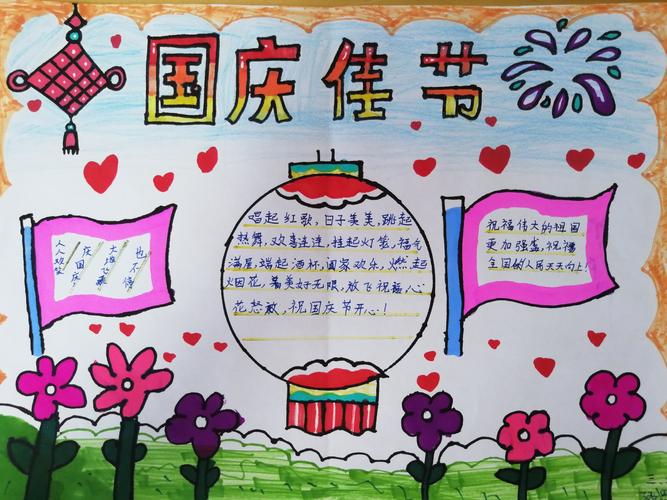 国庆佳节
人人欢笑
庆国庆
唱起红歌,日子美美,跳起
热舞,欢喜连连,挂起灯笼,福气
满屋,端起酒杯,阖家欢乐,燃起
烟花,美好无限,放飞祝福,心
花怒放,祝国庆节开心!
祝福伟大的祖国
更加强盛,祝福
全国的人民天天向上!